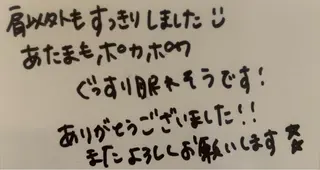 肩以外もすっきりしました☺
あたまもポカポカ
ぐっすり眠れそうです!
ありがとうございました!!
またよろしくお願いします☆